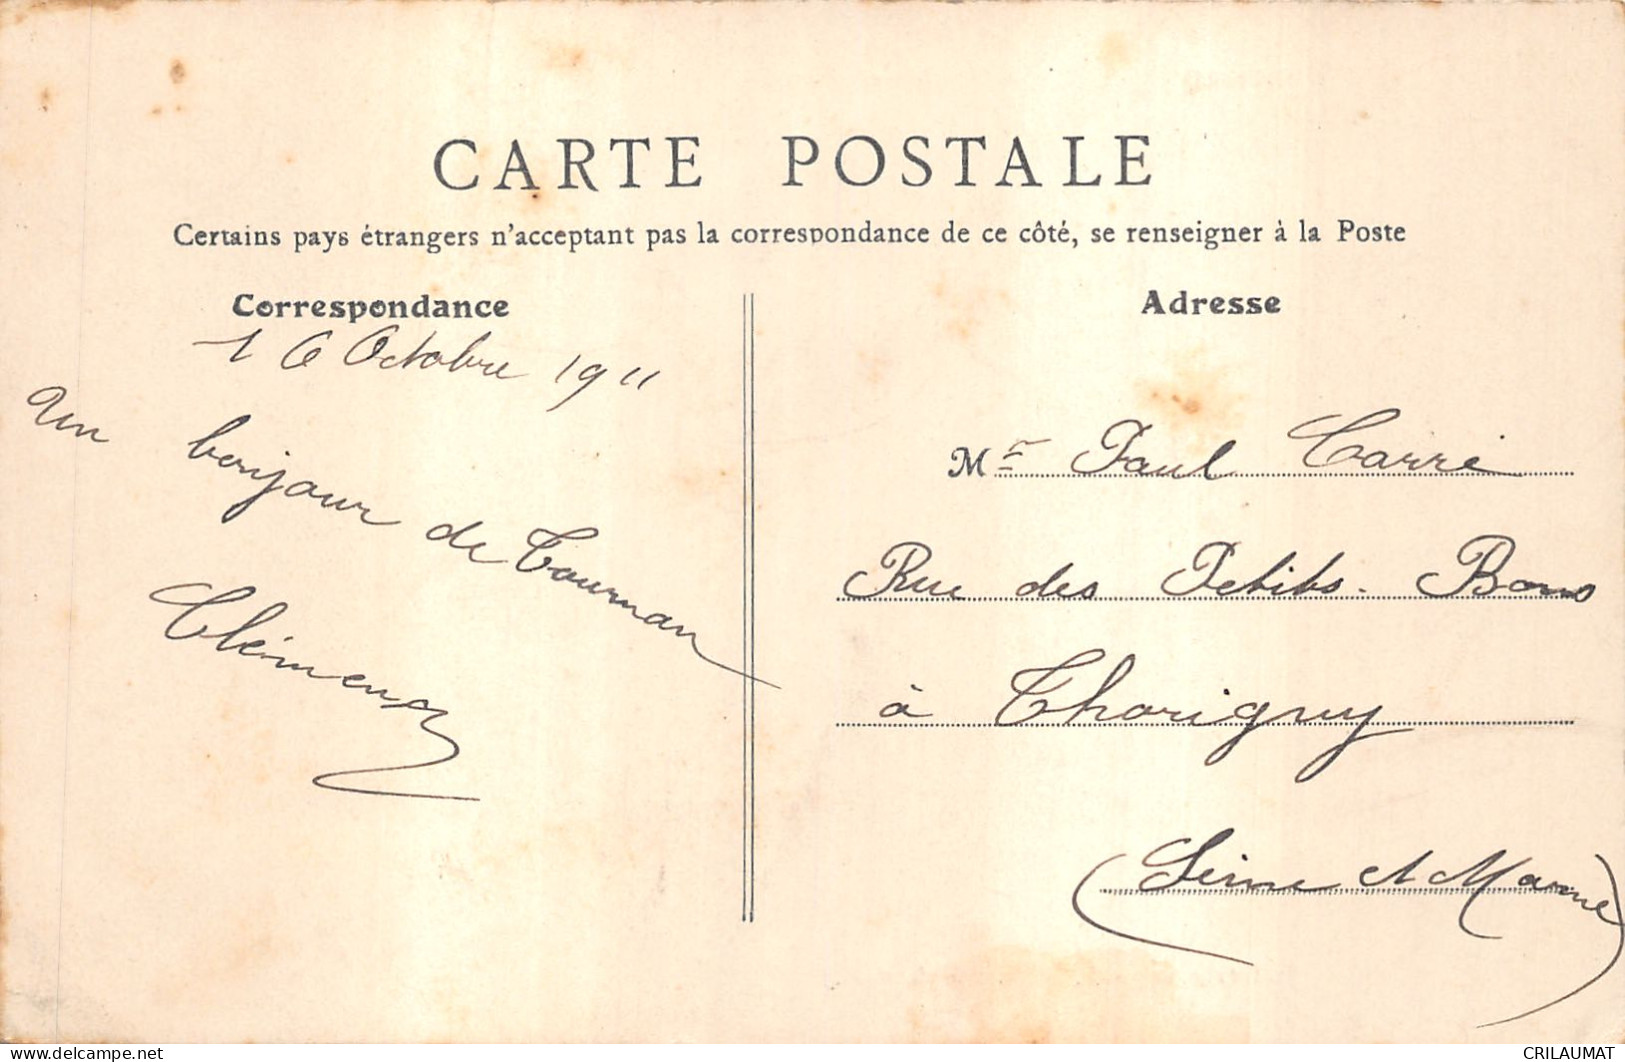 CARTE POSTALE
Certains pays étrangers n'acceptant pas la correspondance de ce côté, se renseigner à la Poste
Correspondance
16 Octobre 1911
Un bonjour de Tournan
Clémence
Adresse
Mr Paul Carré
Rue des Petits-Bons
à Thorigny
(Seine et Marne)
delcampe.net
CRILAUMAT